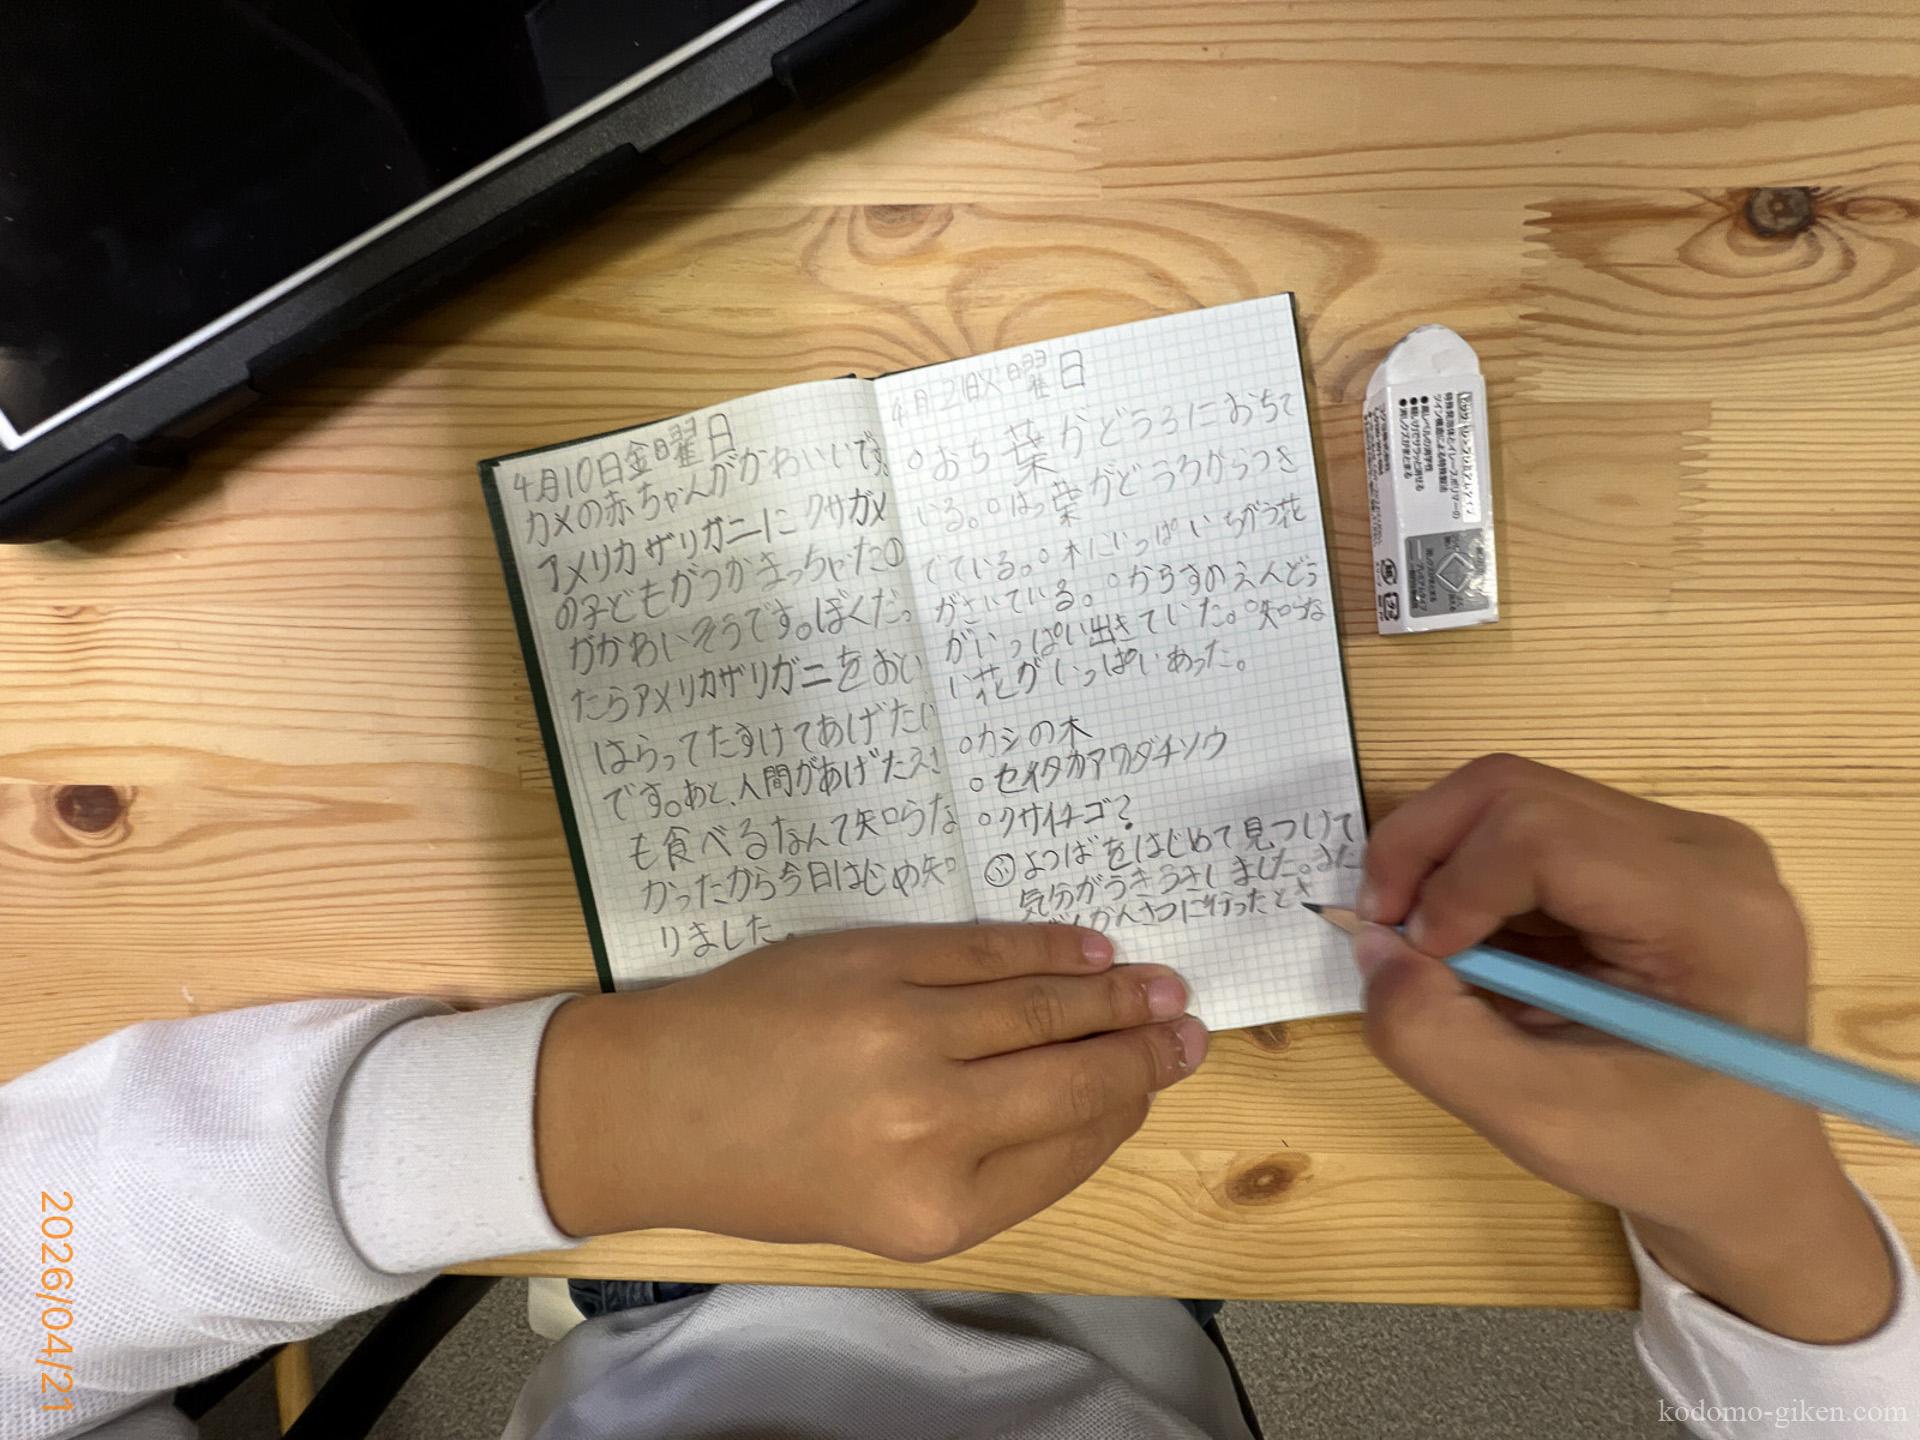 4月10日金曜日
カメの赤ちゃんがかわいいです。
アメリカザリガニにクサガメ
の子どもがつかまっちゃたの
がかわいそうです。ぼくだっ
たらアメリカザリガニをおい
はらってたすけてあげたい
です。あと、人間があげたえさ
も食べるなんて知らな
かったから今日はじめ知
りました。
4月21日火曜日
○おち葉がどうろにおちて
いる。○はっ葉がどうろからつき
でている。○木にいっぱいちがう花
がさいている。○からすのえんどう
がいっぱい出きていた。○知らな
い花がいっぱいあった。
○カシの木
○セイタカアワダチソウ
○クサイチゴ?
よつばをはじめて見つけて
気分がうきうきしました。また
かんさつに行ったとき
2026/04/21
kodomo-giken.com